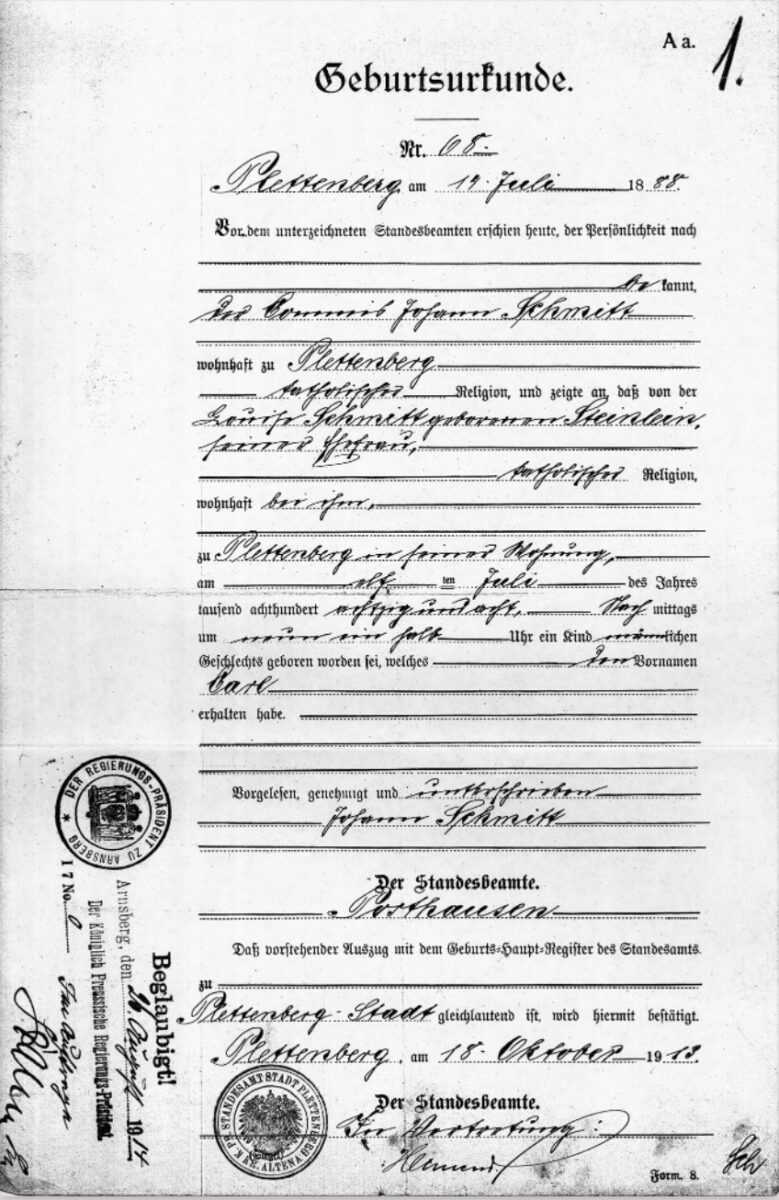 A a.
1.
Geburtsurkunde.
Nr. 68.
Plettenberg am 14 Juli 1888.
Vor dem unterzeichneten Standesbeamten erschien heute, der Persönlichkeit nach
be kannt,
der Commis Johann Schmitt
wohnhaft zu Plettenberg
katholischer Religion, und zeigte an, daß von der
Louise Schmitt geborenen Steinlein,
seiner Ehefrau,
katholischer Religion,
wohnhaft bei ihm,
zu Plettenberg in seiner Wohnung,
am elf ten Juli des Jahres
tausend achthundert achtzig und acht, Nach mittags
um neun ein halb Uhr ein Kind männlichen
Geschlechts geboren worden sei, welches den Vornamen
Carl
erhalten habe.
Vorgelesen, genehmigt und unterschrieben
Johann Schmitt
Der Standesbeamte.
Posthausen
Daß vorstehender Auszug mit dem Geburts-Haupt-Register des Standesamts
zu
Plettenberg-Stadt gleichlautend ist, wird hiermit bestätigt.
Plettenberg, am 18. Oktober 1913.
Der Standesbeamte.
In Vertretung:
Form. 8.
DER REGIERUNGS-PRÄSIDENT ZU ARNSBERG
Beglaubigt!
Arnsberg, den 26. August 1914
Der Königlich Preussische Regierungs-Präsident.
I 7 No.
Im Auftrage
K. PR. STANDESAMT STADT PLETTENBERG KR. ALTENA